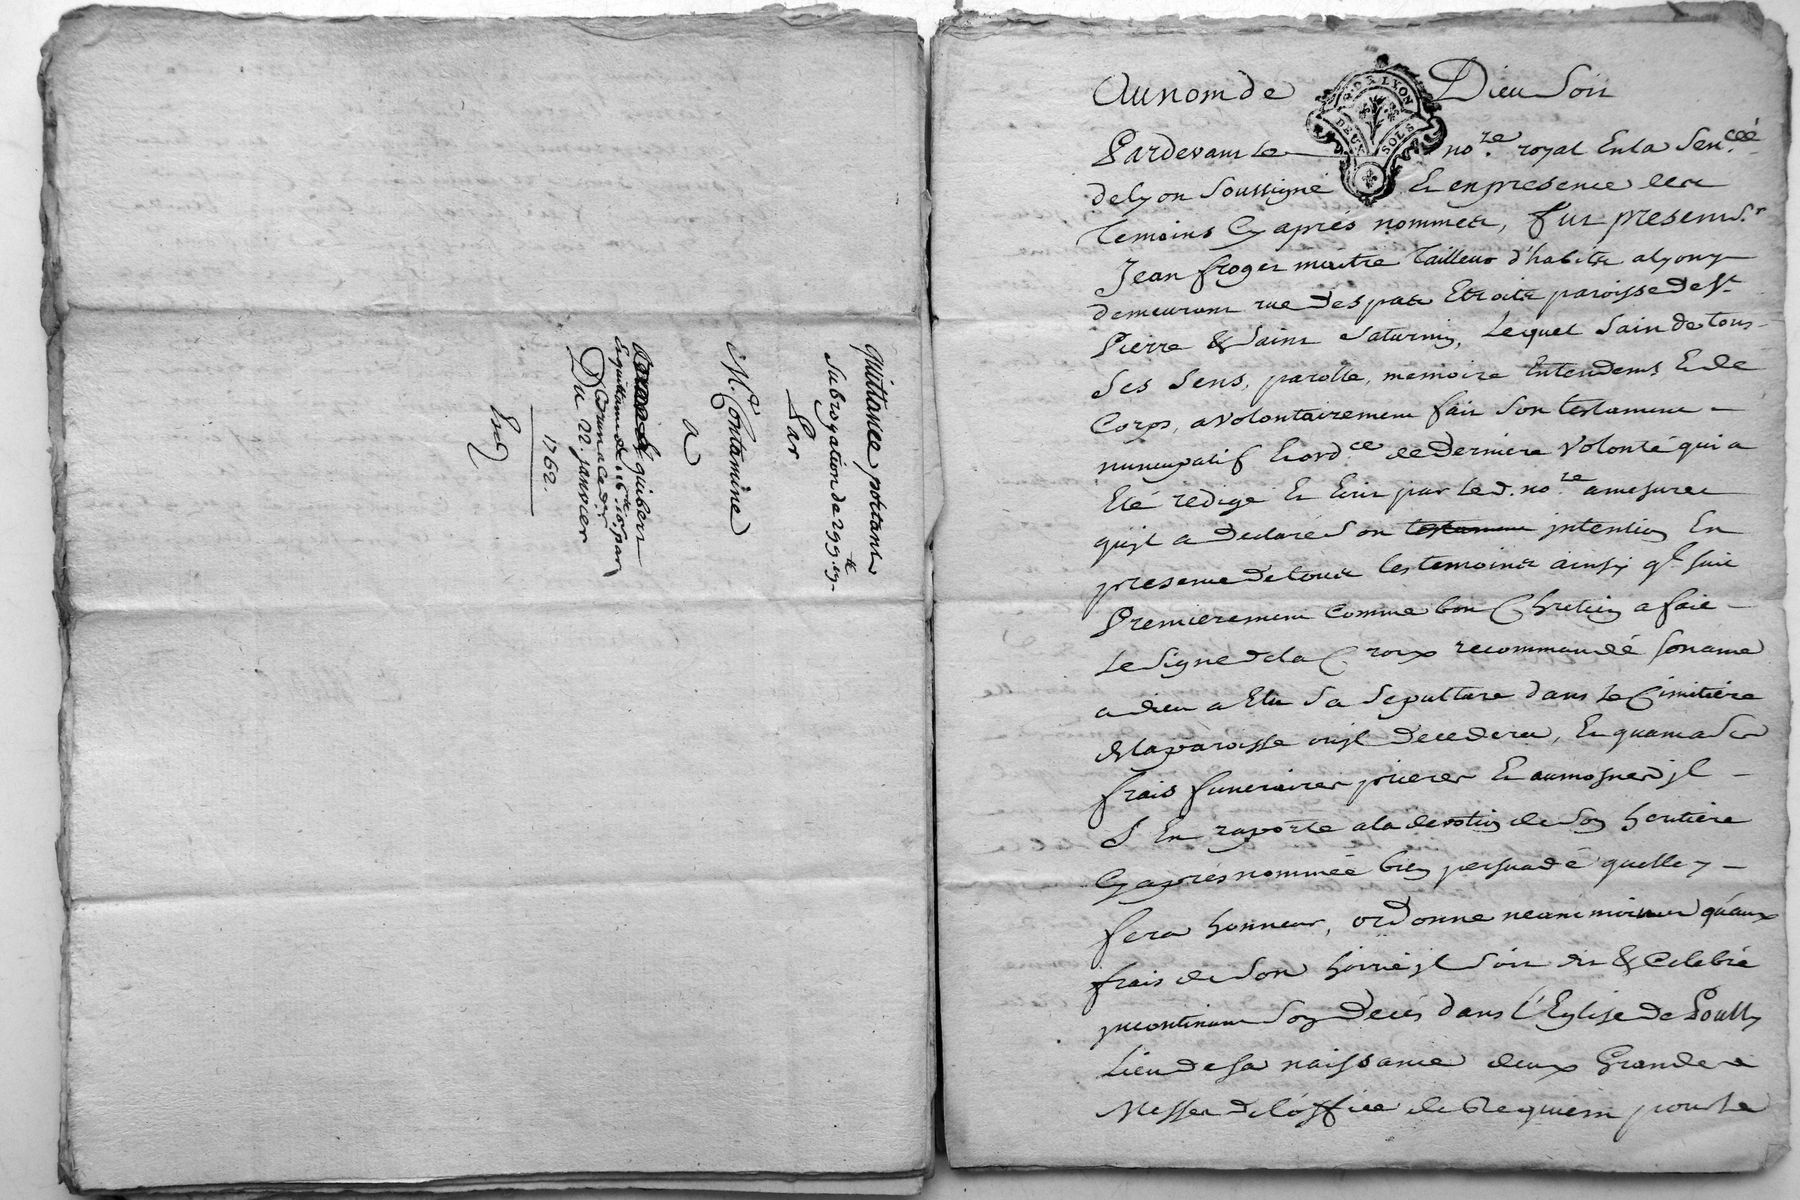 quittance portant
subrogation de 299.lt 19.s
Par
Mr. Contamine
a
guibert
Et quittance de 16.lt 10.s par
Du 22. janvier
1762.
Exp
Au nom de Dieu Soit
GR. DE LYON
DEUX SOLS
Pardevant Le no.re royal En la Sen.cée
de lyon Soussigné & en presence des
Temoins Cy après nommés, fut present S.r
Jean froger maitre Tailleur d'habits a lyon y
demeurant rue des pats Etroits paroisse de S.t
Pierre & Saint Saturnin, Lequel Sain de tous
Ses Sens, parolle, memoire Entendemt. & de
Corps, a volontairement fait Son testament
nuncupatif & ord.ce de Derniere Volonté qui a
Eté rédigé Et Ecrit par le d. no.re a mesure
qu'jl a Declaré Son testament jntention En
presence de tous les temoins ainsy q.l suit
Premierement comme bon Chretien a fait
Le Signe de la Croix recommandé son ame
a dieu a Elu Sa Sepulture dans le Cimitière
de la paroisse ou jl Decedera, Et quant a Ses
frais funeraires prieres Et aumosnes jl
S'En raporte a la devotion de Son heritière
Cy après nommée bien persuadé quelle y
fera honneur, ordonne neantmoins qu'aux
frais de Son hoirie jl Soit dit & Celebré
jncontinant Son Decès dans l'Eglise de Poully
Lieu de sa naissance deux Grandes
Messes de l'office de Requiem pour le